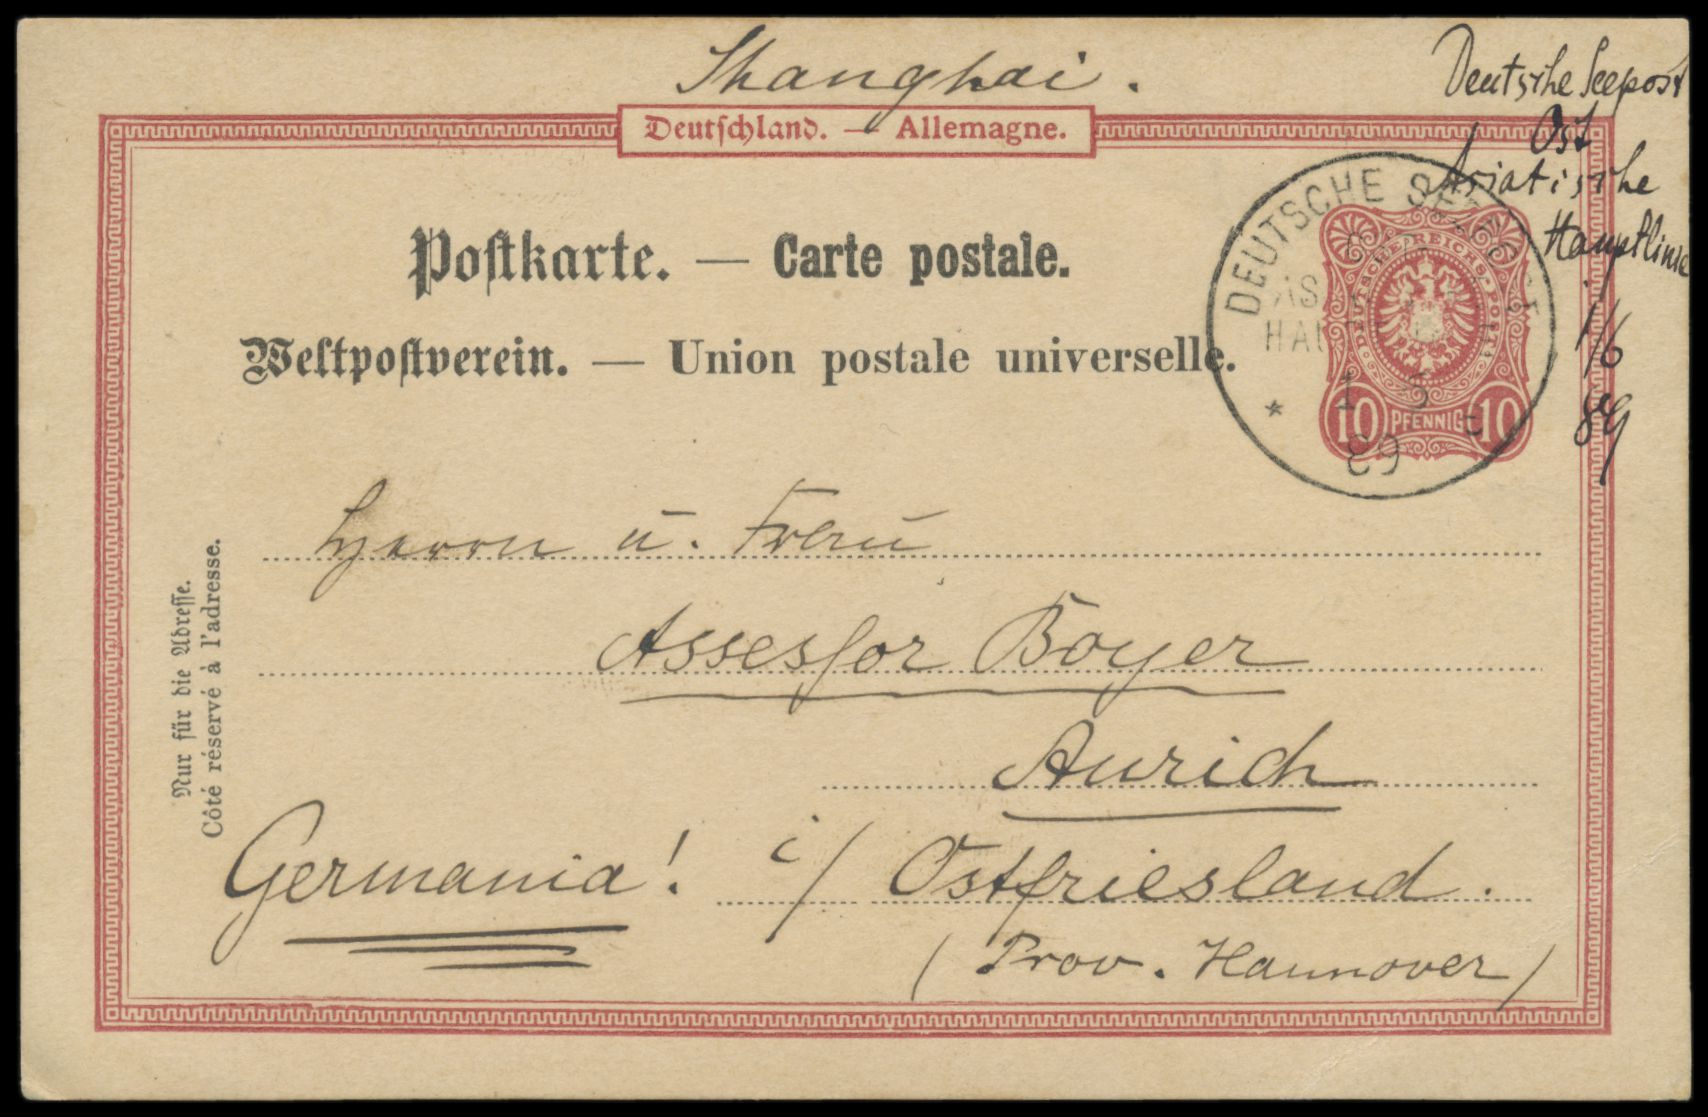 Shanghai.
Deutschland. — Allemagne.
Deutsche Seepost
Ost
Asiatische
Hauptlinie
1/6
89
Postkarte. — Carte postale.
Weltpostverein. — Union postale universelle.
DEUTSCHE SEEPOST
HAU
* 1 6
89
DEUTSCHE REICHS-POST
10 PFENNIG 10
Herrn u. Frau
Assessor Boyer
Aurich
Germania! i/ Ostfriesland.
(Prov. Hannover)
Nur für die Adresse.
Côté réservé à l'adresse.